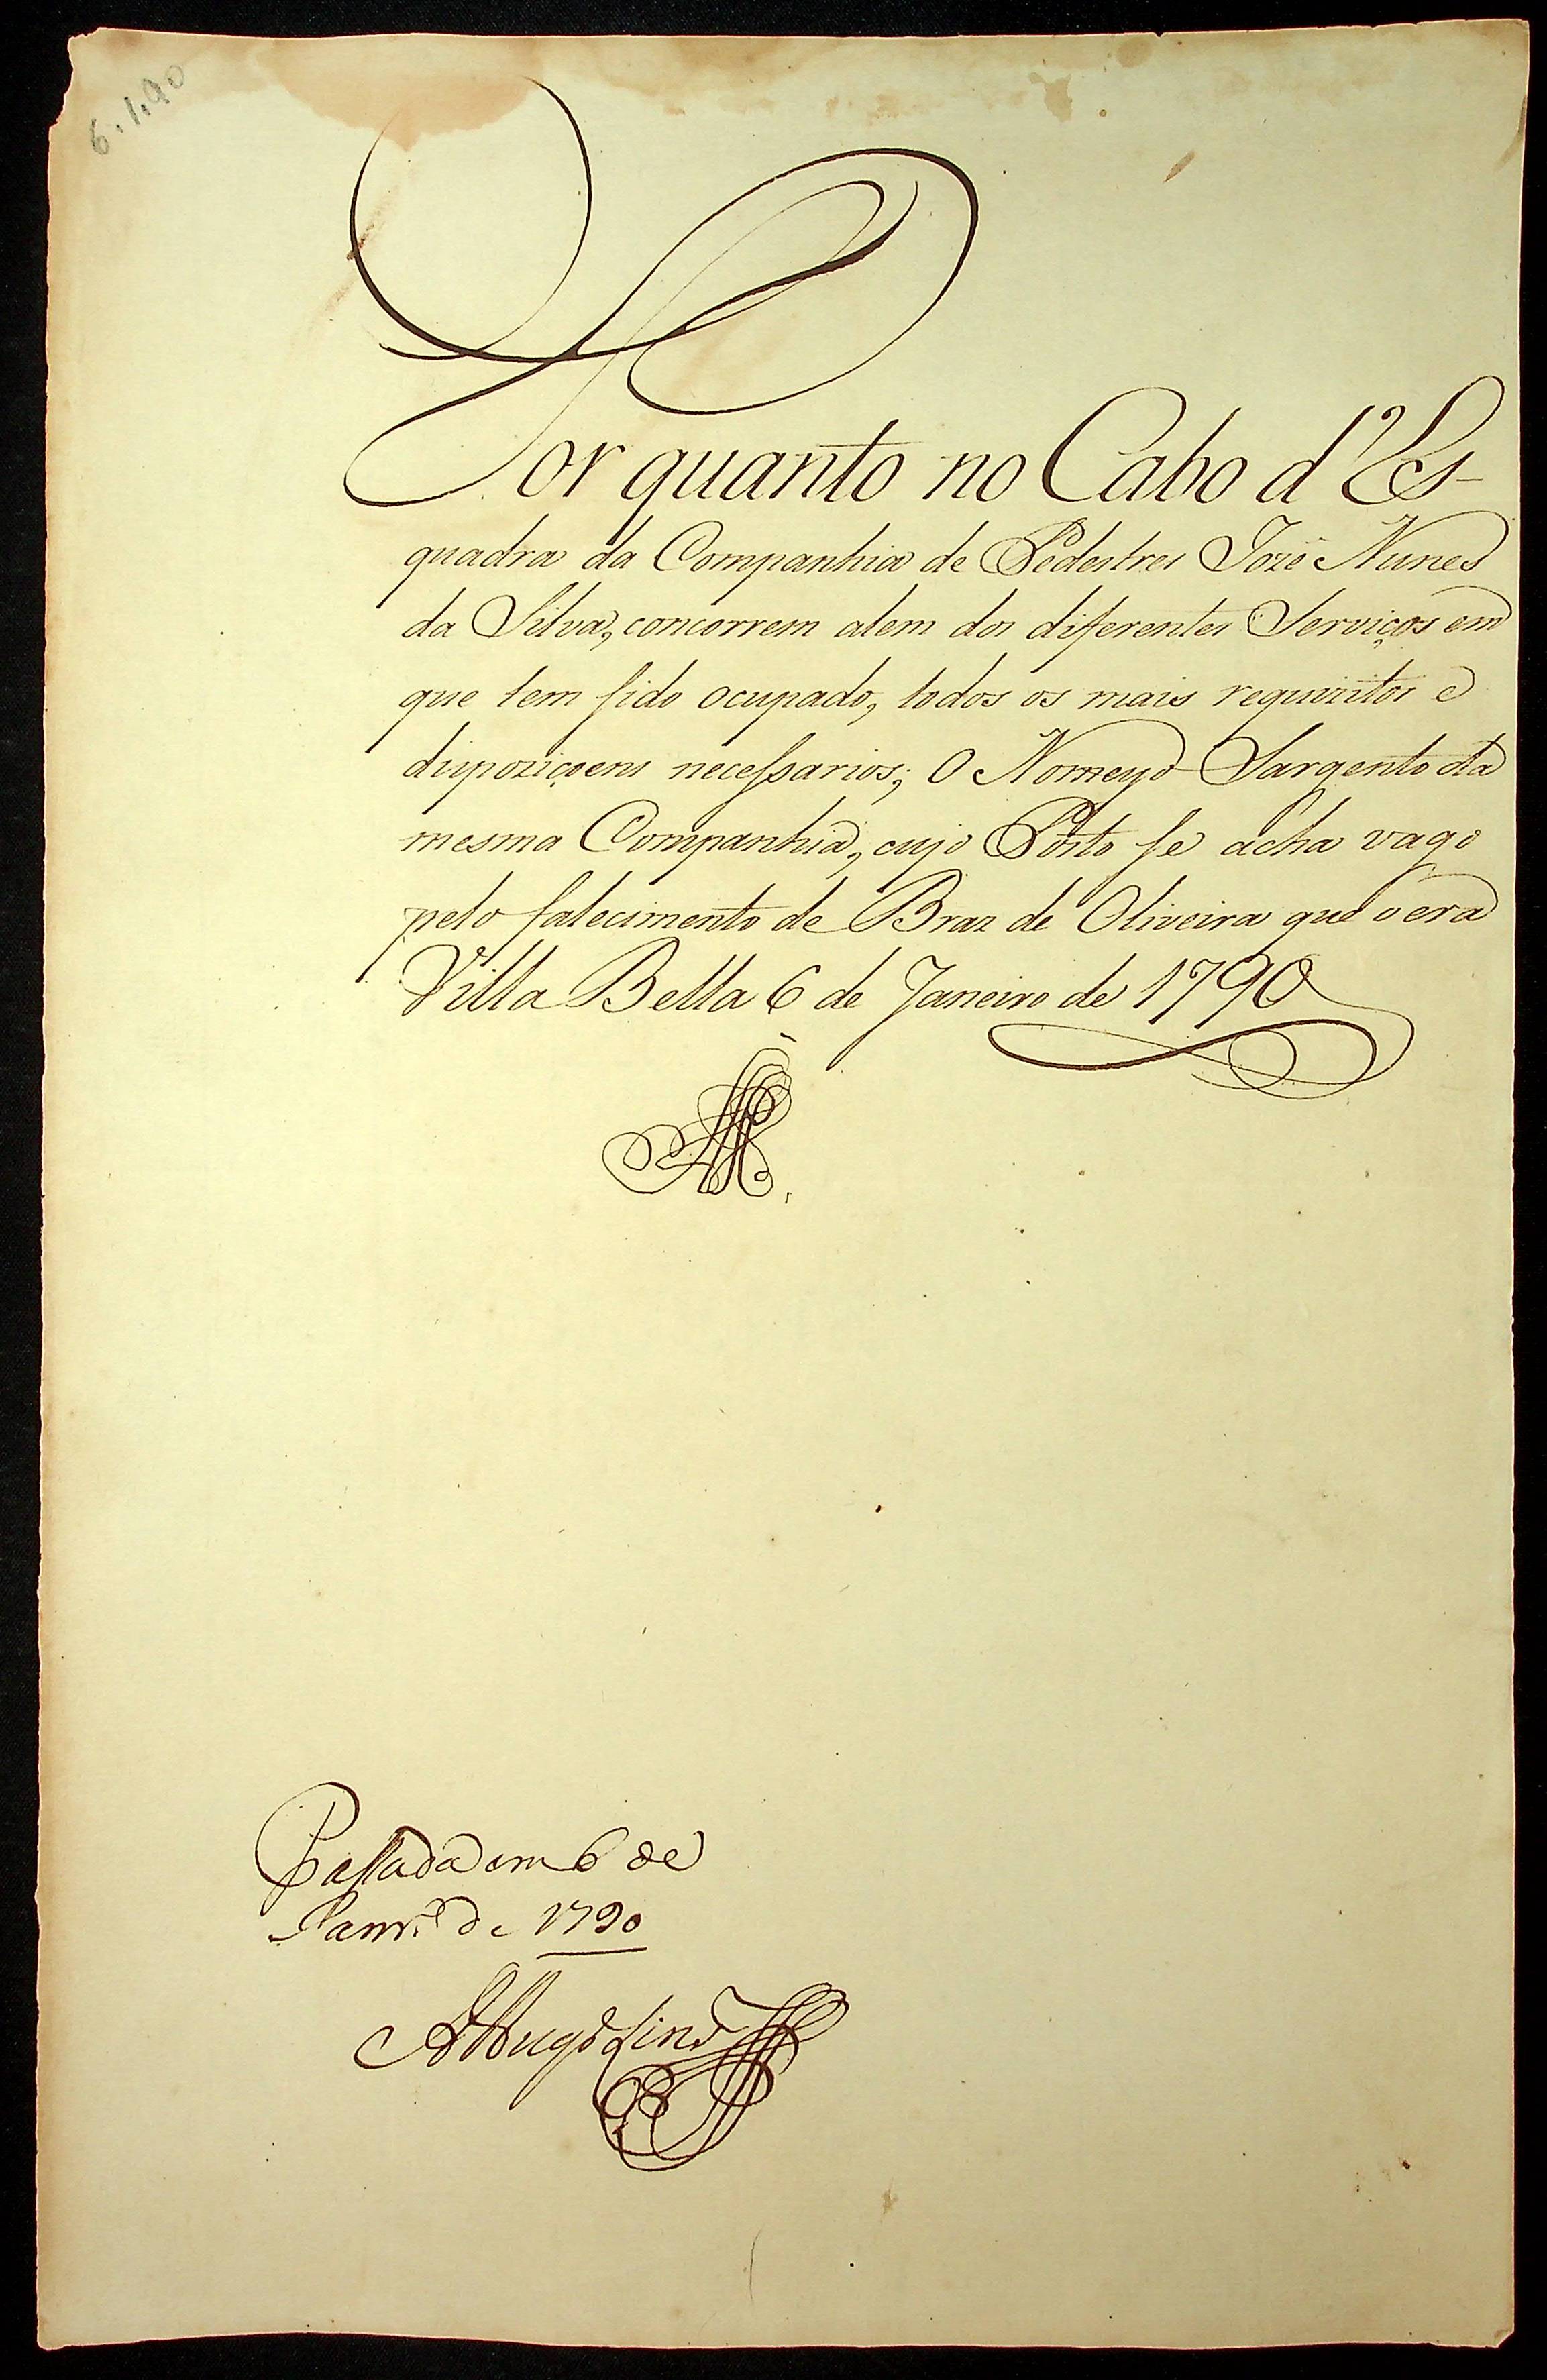 6.1.90
Por quanto no Cabo d'Es-
quadra da Companhia de Pedestres Jozé Nunes
da Silva, concorrem alem dos diferentes Serviços em
que tem sido ocupado, todos os mais requizitos e
dispoziçoens necessarios; O Nomeyo Sargento da
mesma Companhia, cujo Posto se acha vago
pelo falecimento de Braz de Oliveira que o era
Villa Bella 6 de Janeiro de 1790
Passada em 6 de
Janr.º de 1790